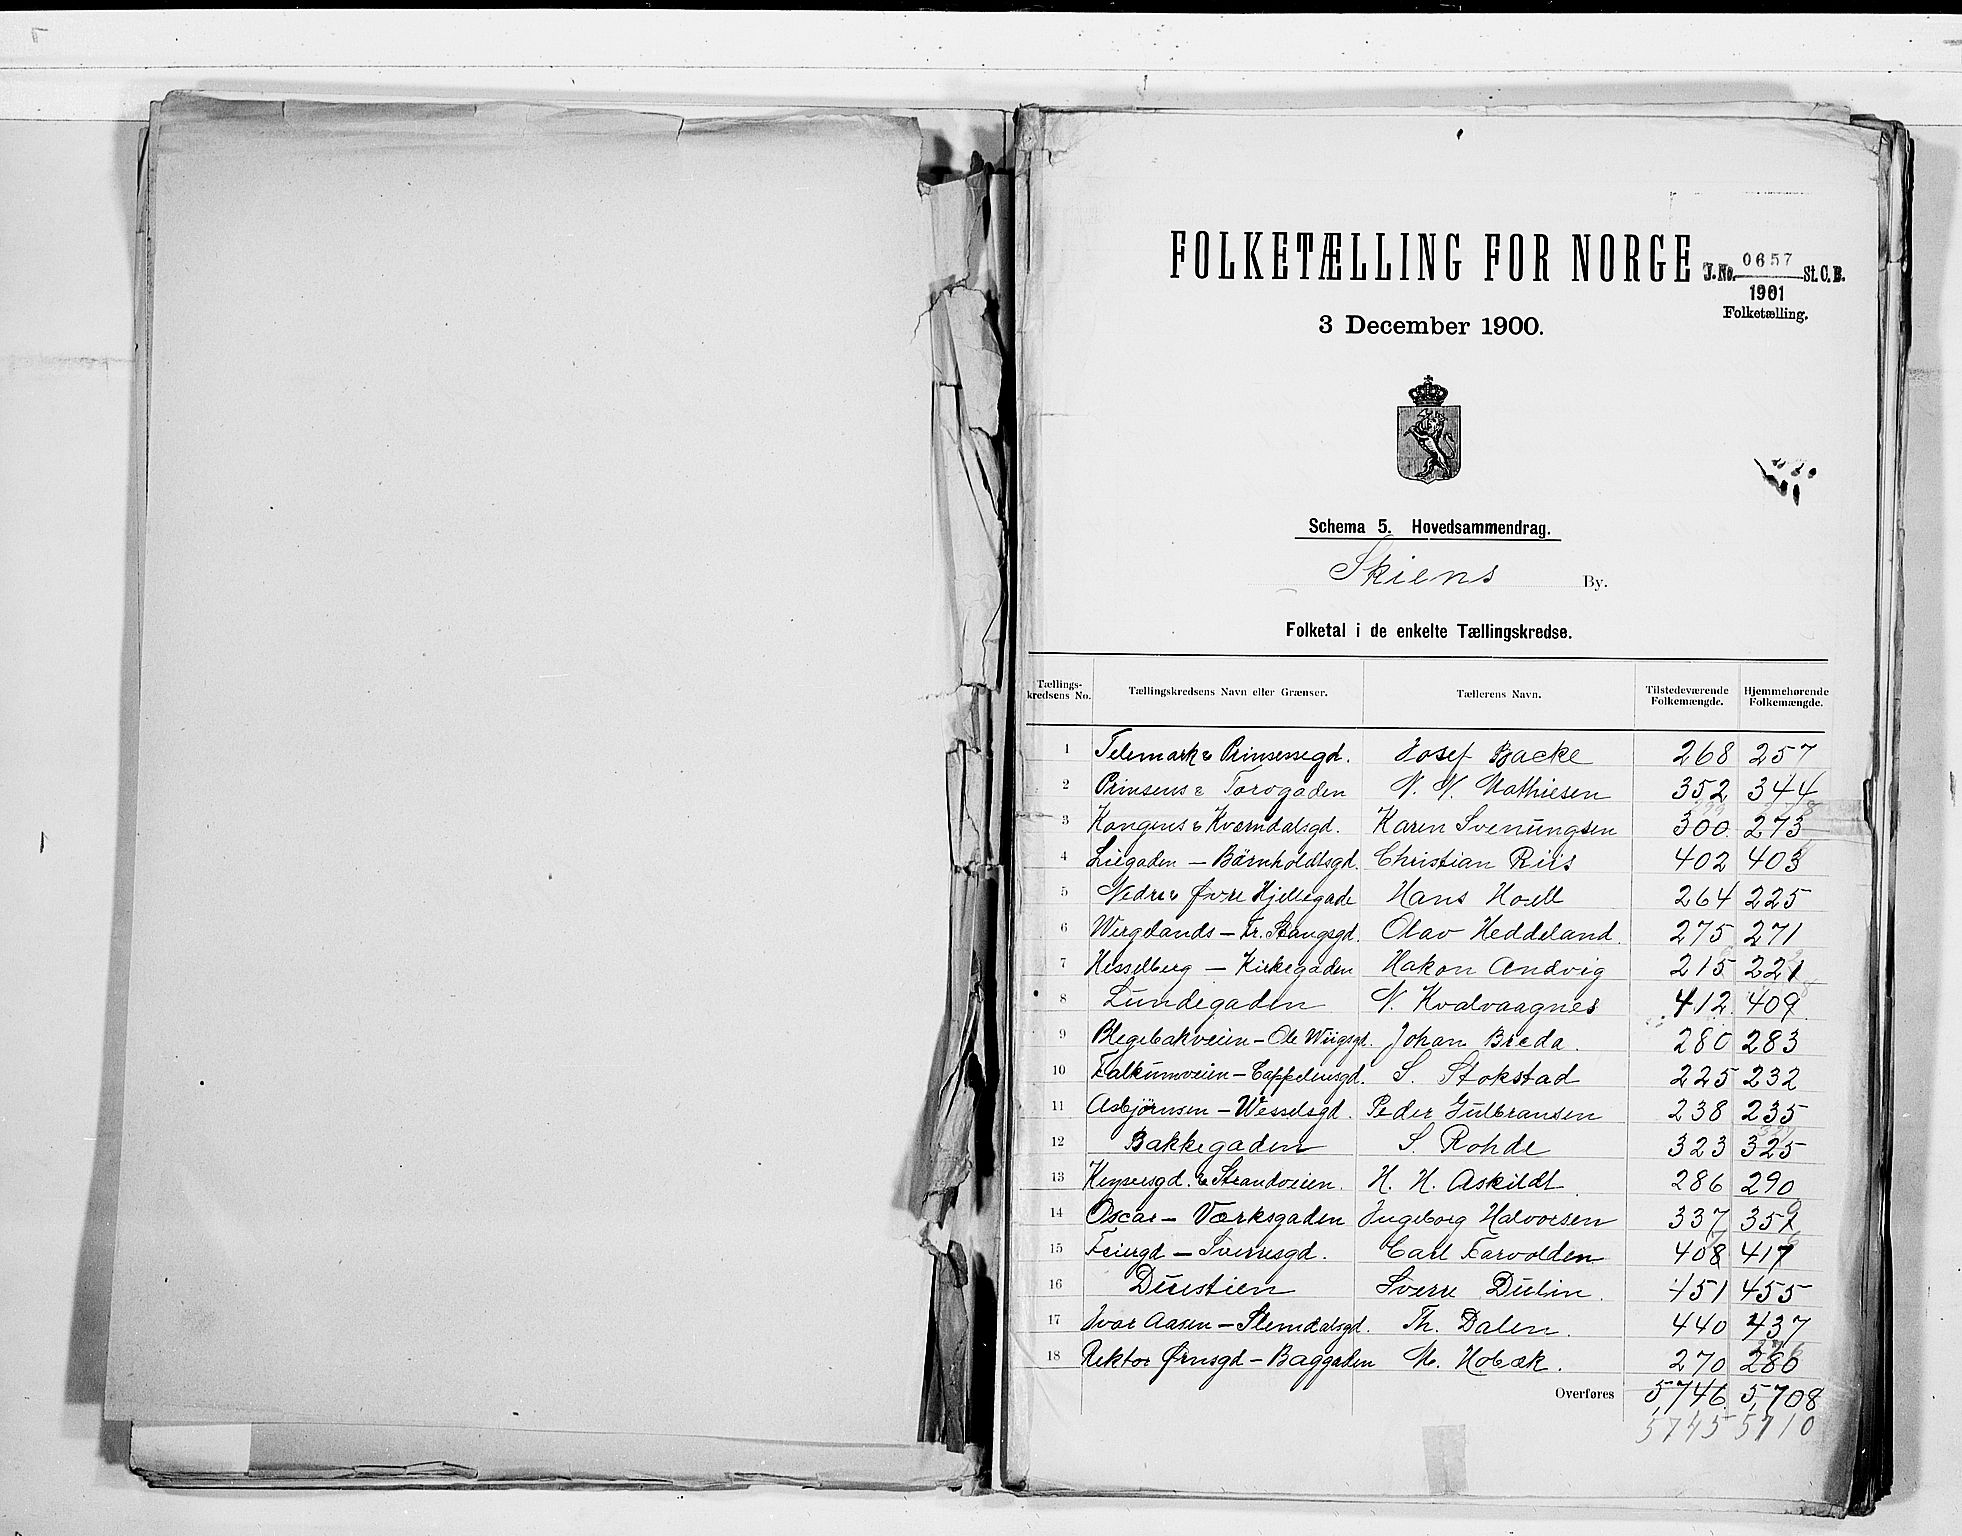 FOLKETÆLLING FOR NORGE
J. No. 0657 St. C. B.
1901
Folketælling.
3 December 1900.
Schema 5. Hovedsammendrag.
Skiens By.
Folketal i de enkelte Tællingskredse.
Tællings-kredsens No. Tællingskredsens Navn eller Grænser. Tællerens Navn. Tilstedeværende Folkemængde. Hjemmehørende Folkemængde.
1 Telemark & Prinsessegd. Josef Backe 268 257
2 Prinsens & Torvgaden N. N. Mathiesen 352 344
3 Kongens & Kværndalsgd. Karen Svenungsen 300 273
4 Liegaden – Børnholdtsgd. Christian Riis 402 403
5 Nedre & Øvre Hjellegade Hans Hoell 264 225
6 Wergelands – Fr. Stangsgd. Olav Heddeland. 275 271
7 Hesselberg – Kirkegaden Hakon Andvig 215 221
8 Lundegaden N. Kvalvaagnes 412 409
9 Blegebakveien – Ole Wiigsgd. Johan Breda. 280 283
10 Falkumveien – Cappelensgd. S. Stokstad 225 232
11 Asbjørnsen – Wesselsgd. Peder Gulbransen 238 235
12 Bakkegaden S. Rohde 323 325
13 Keysersgd. & Strandveien. H. H. Askildt. 286 290
14 Oscar – Værksgaden Ingeborg Halvorsen 337 359
15 Feiergd – Sverresgd. Carl Farvolden 408 417
16 Duestien Sverre Dulin. 451 455
17 Ivar Aasen – Slemdalsgd. Th. Dalen. 440 437
18 Rektor Ørnsgd – Baggaden M. Hobæk. 270 286
Overføres 5,746 5,708
5745 5710